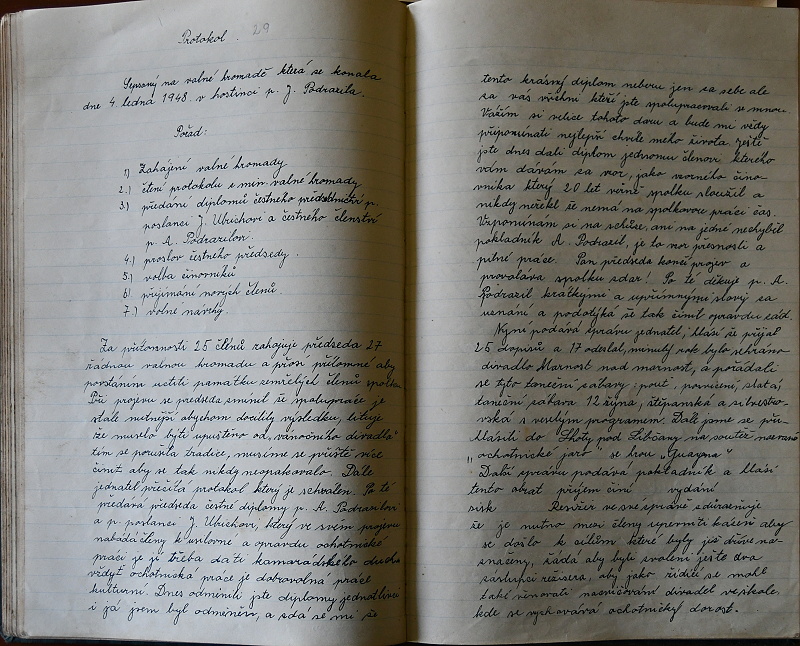 Protokol. 29
Sepsaný na valné hromadě která se konala
dne 4. ledna 1948 v hostinci p. J. Podrazila.
Pořad:
1.) Zahájení valné hromady
2.) čtení protokolu z min. valné hromady
3.) předání diplomů čestného předsednictví p.
poslanci J. Ubichovi a čestného členství
p. A. Podrazilovi.
4.) proslov čestného předsedy.
5.) volba činovníků
6.) přijímání nových členů.
7.) volné návrhy.
Za přítomnosti 25 členů zahajuje předseda 27
řádnou valnou hromadu a prosí přítomné aby
povstáním uctili památku zemřelých členů spolku.
Při projevu se předseda zmínil že spolupráce je
stále nutnější abychom docílily výsledku, lituje
že muselo býti upuštěno od vánočního divadla
tím se porušila tradice, musíme se příště více
činit aby se tak nikdy neopakovalo. Dále
jednatel přečítá protokol který je schválen. Po té
předává předseda čestné diplomy p. A. Podrazilovi
a p. poslanci J. Ubichovi, který ve svém projevu
nabádá členy k usilovné a opravdu ochotnické
práci je jí třeba dáti kamarádského ducha
vždyť ochotnická práce je dobrovolná práce
kulturní. Dnes odměnili jste diplomy jednatlivce
i já jsem byl odměněn, a zdá se mi že
tento krásný diplom neberu jen za sebe ale
za vás všichni kteří jste spolupracovali se mnou.
Vážím si velice tohoto daru a bude mi vždy
připomínati nejlepší chvíle mého života. Ještě
jste dnes dali diplom jednomu členovi kterého
vám dávám za vzor, jako vzorného čino-
vníka který 20 let věrně spolku sloužil a
nikdy neřekl že nemá na spolkovou práci čas.
Vzpomínám si na schůze, ani na jedné nechyběl
pokladník A. Podrazil, je to vzor přesnosti a
pilné práce. Pan předseda končí projev a
provolává spolku zdar! Po té děkuje p. A.
Podrazil krátkými a upřímnými slovy za
uznání a podotýká že tak činil opravdu rád.
Nyní podává zprávu jednatel, hlásí že přijal
25 dopisů a 17 odeslal, minulý rok bylo sehráno
divadlo Marnost nad marnost, a pořádali
se tyto taneční zábavy: pouť, posvícení, zlatá,
taneční zábava 12 října, štěpánská a silvestro-
vská s veselým programem. Dále jsme se při-
hlásili do Lhoty pod Libčany na soutěž nazvanou
„ochotnické jaro" se hrou „Guayna"
Další zprávu podává pokladník a hlásí
tento obrat příjem činí vydání
zisk Režiser ve své zprávě zdůrazňuje
že je nutno mezi členy upevniti kázeň aby
se došlo k cílům které byly již dříve na-
značeny, žádá aby byli zvoleni ještě dva
zastupci režiséra, aby jako řídící se mohl
také věnovati nacvičování divadel ve škole,
kde se vychovává ochotnický dorost.